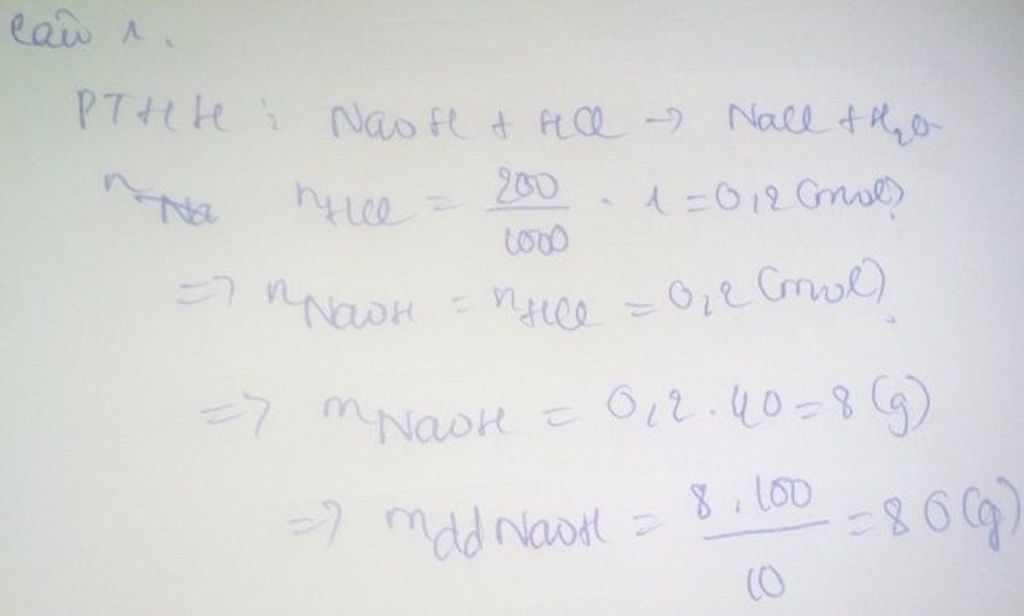 Câu 1.
PTHH : NaOH + HCl → NaCl + H₂O
n_HCl = 200/1000 . 1 = 0,2 (mol)
=> n_NaOH = n_HCl = 0,2 (mol)
=> m_NaOH = 0,2 . 40 = 8 (g)
=> m_dd NaOH = 8.100/10 = 80 (g)